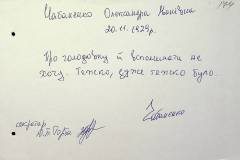 144
Чабаненко Олександра Юхимівна
20.11.1929р.
Про голодовку й вспоминати не
хочу. Тяжко, дуже тяжко було.
Чабаненко
секретар